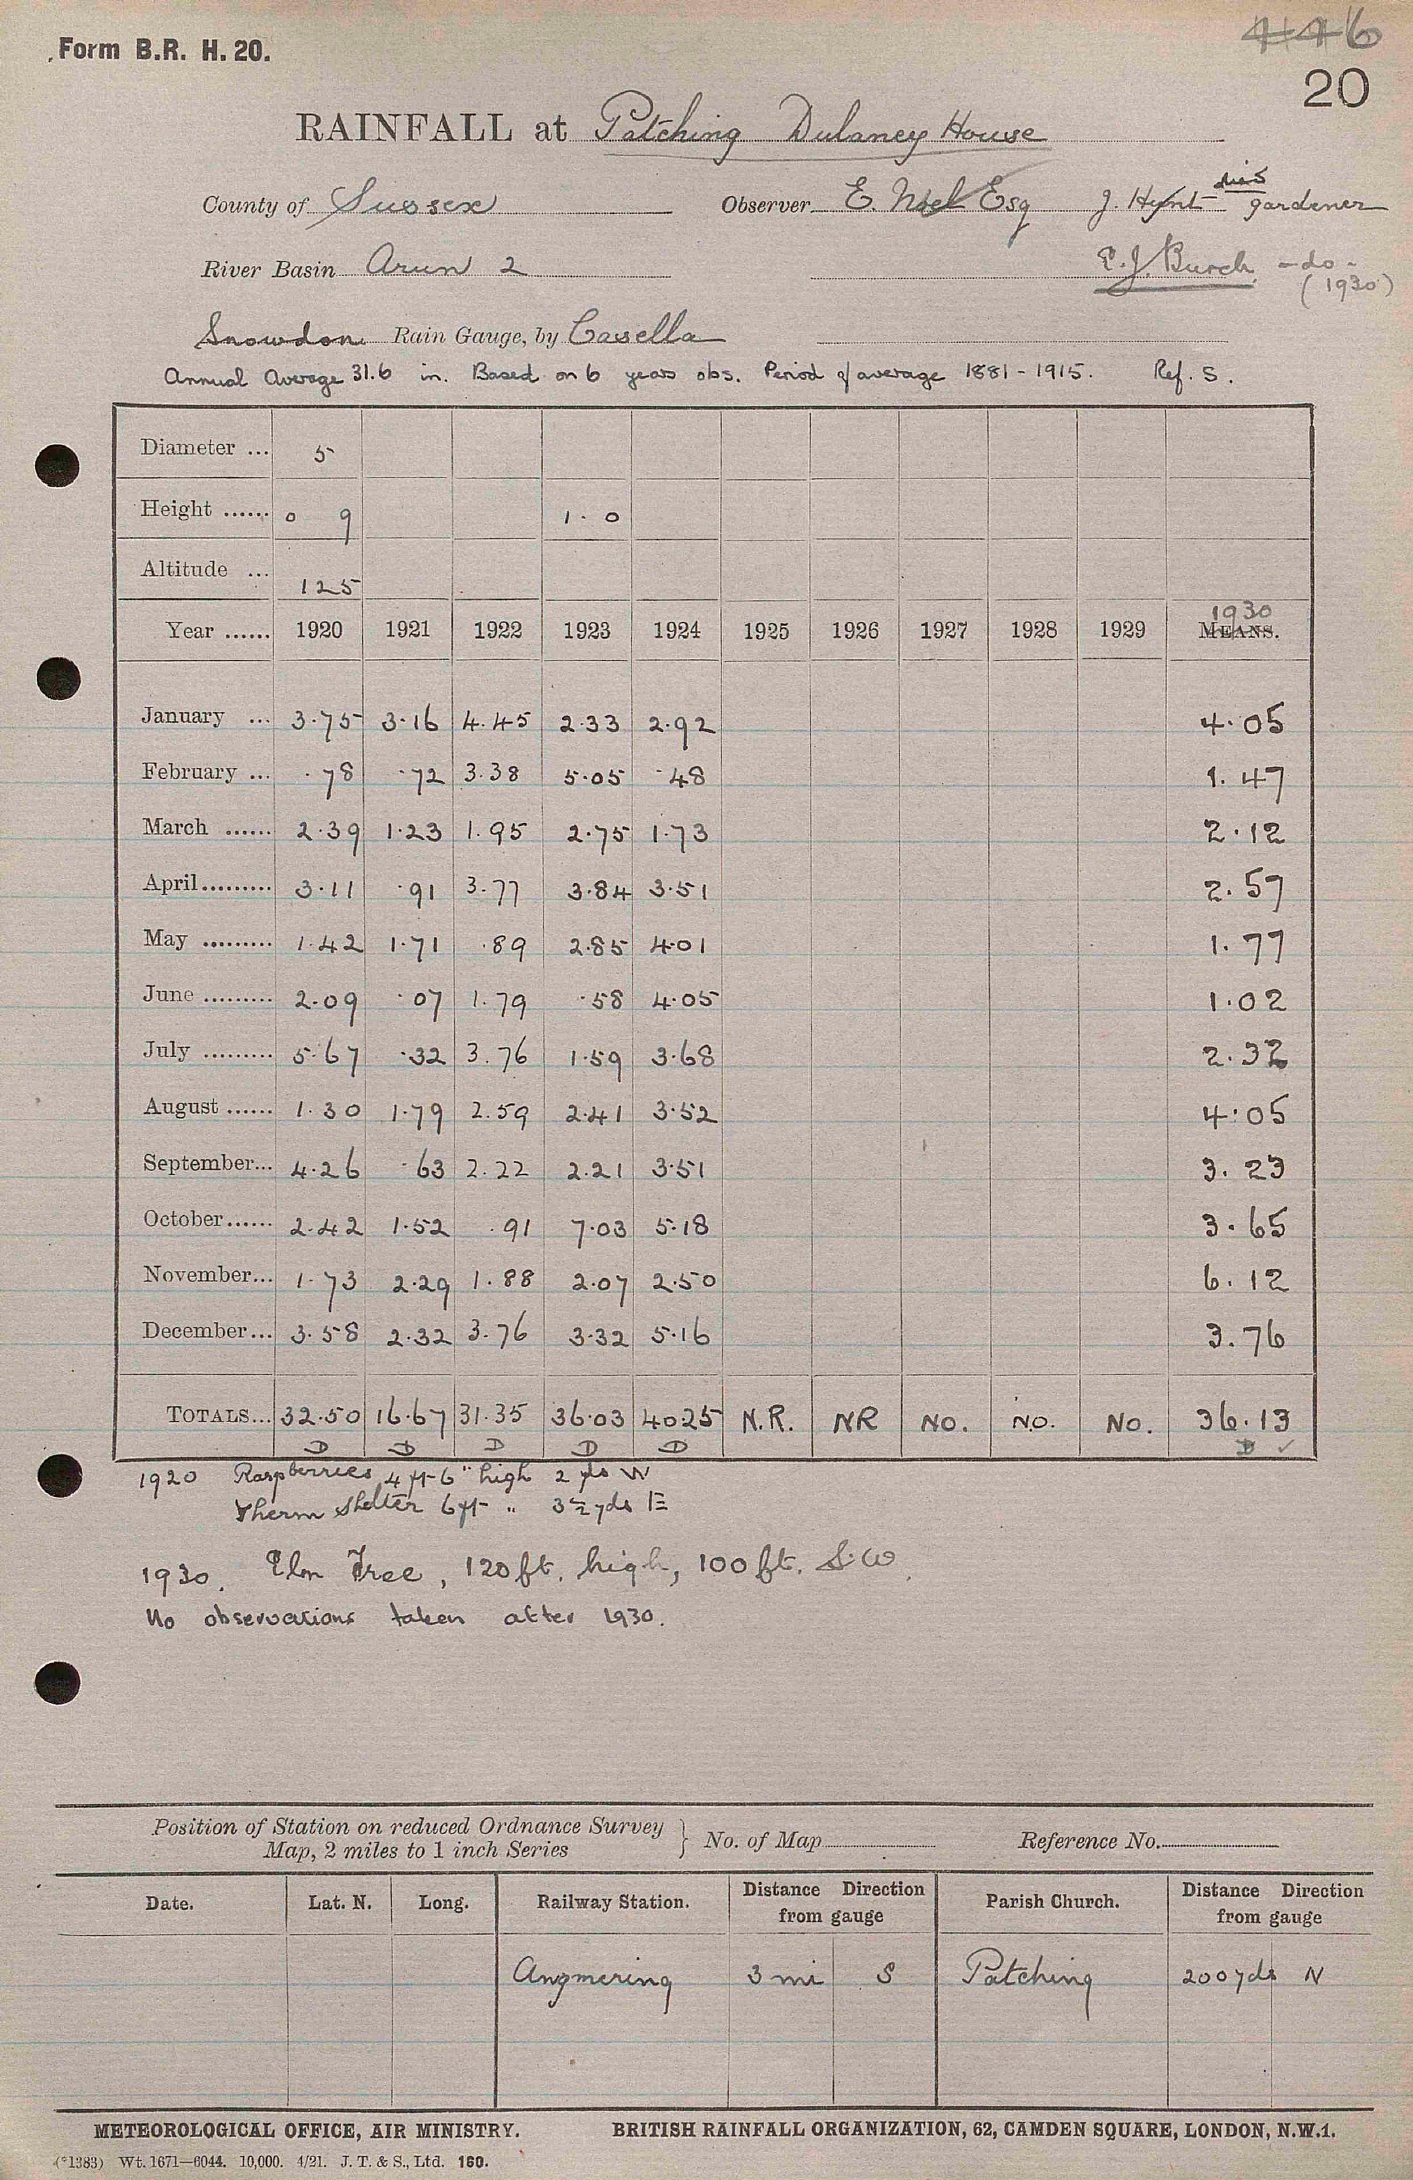 Form B.R. H. 20.
446
20
RAINFALL at Patching Dulaney House
County of Sussex Observer E. Noel Esq J. Hunt died gardener
River Basin Arun 2 E. J. Burch -do- (1930)
Snowdon Rain Gauge, by Casella
Annual Average 31.6 in. Based on 6 years obs. Period of average 1881-1915. Ref. S.
Diameter ... 5
Height ...... 0 9 1·0
Altitude ... 125
Year ...... 1920 1921 1922 1923 1924 1925 1926 1927 1928 1929 MEANS. 1930
January ... 3·75 3·16 4·45 2·33 2·92 4·05
February ... ·78 ·72 3·38 5·05 ·48 1·47
March ...... 2·39 1·23 1·95 2·75 1·73 2·12
April ......... 3·11 ·91 3·77 3·84 3·51 2·57
May ......... 1·42 1·71 ·89 2·85 4·01 1·77
June ......... 2·09 ·07 1·79 ·58 4·05 1·02
July ......... 5·67 ·32 3·76 1·59 3·68 2·32
August ...... 1·30 1·79 2·59 2·41 3·52 4·05
September... 4·26 ·63 2·22 2·21 3·51 3·23
October...... 2·42 1·52 ·91 7·03 5·18 3·65
November... 1·73 2·29 1·88 2·07 2·50 6·12
December... 3·58 2·32 3·76 3·32 5·16 3·76
TOTALS... 32·50 16·67 31·35 36·03 40·25 N.R. NR No. No. No. 36·13
D D D D D D ✓
1920 Raspberries 4 ft 6" high 2 yds W
Therm Shelter 6 ft " 3½ yds E
1930. Elm Tree, 120 ft. high, 100 ft. S.W.
No observations taken after 1930.
Position of Station on reduced Ordnance Survey Map, 2 miles to 1 inch Series } No. of Map Reference No.
Date. Lat. N. Long. Railway Station. Distance Direction from gauge Parish Church. Distance Direction from gauge
Angmering 3 mi S Patching 200 yds N
METEOROLOGICAL OFFICE, AIR MINISTRY. BRITISH RAINFALL ORGANIZATION, 62, CAMDEN SQUARE, LONDON, N.W.1.
(*1383) Wt. 1671—6044. 10,000. 4/21. J. T. & S., Ltd. 160.